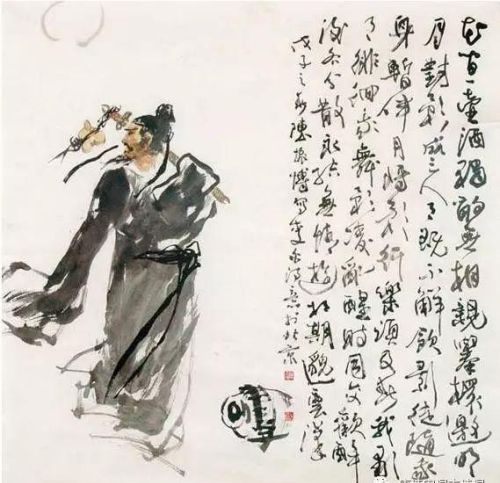 花間一壺酒獨酌無相親舉杯邀明
月對影成三人月既不解飲影徒隨我
身暫伴月將影行樂須及春我歌
月徘徊我舞影零亂醒時同交歡醉
後各分散永結無情遊相期邈雲漢
戊子之 陳振 寫李白詩意於北京